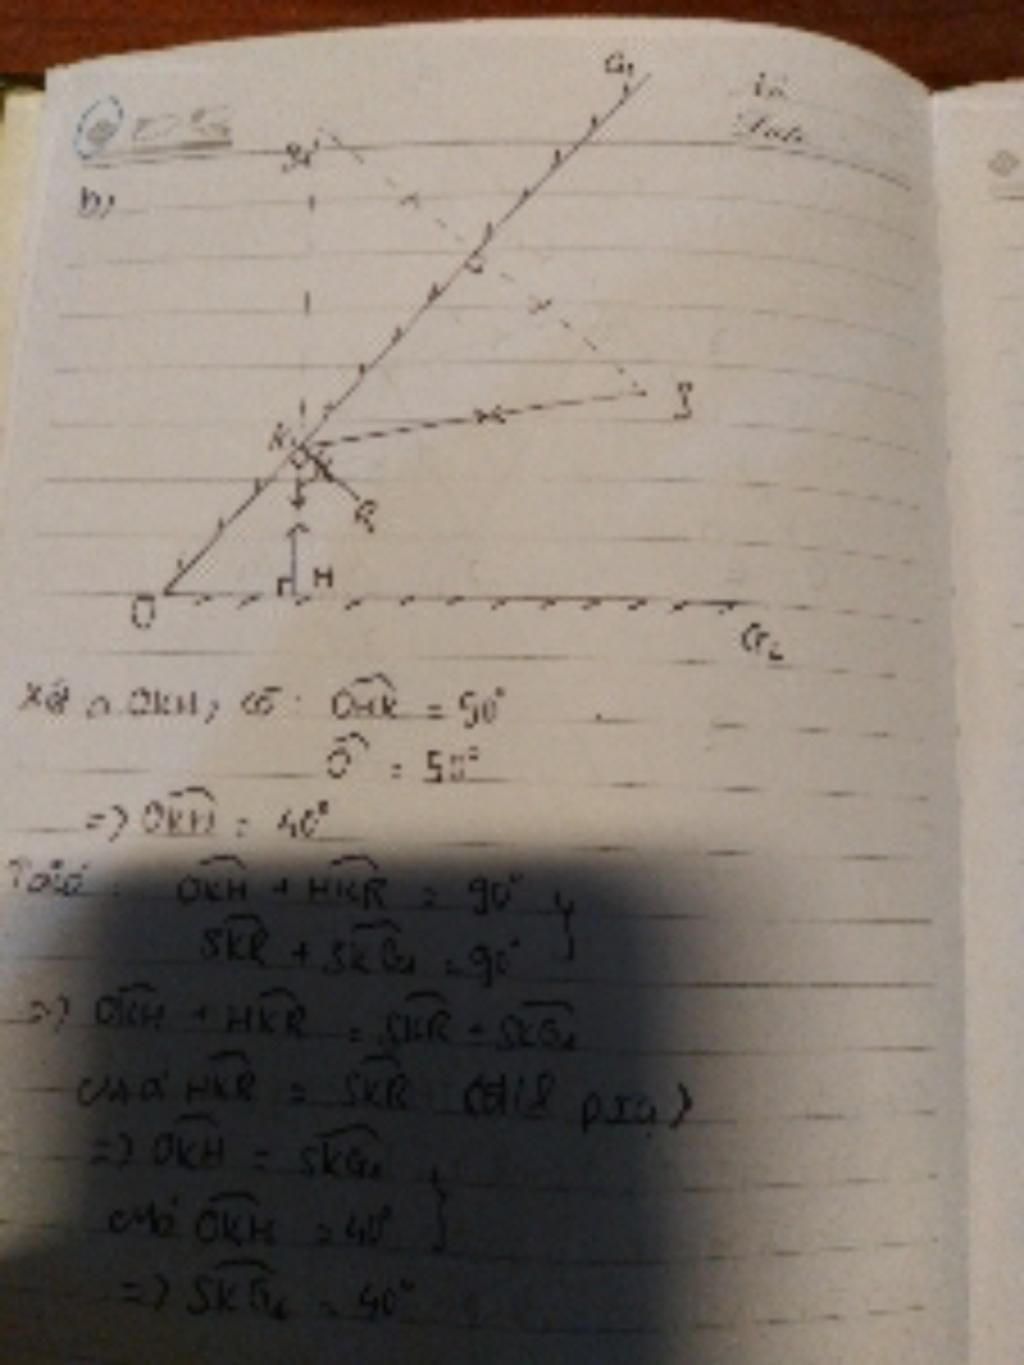 G₁
b)
S'
S
K
R
H
O
G₂
Xét △ OKH, có: OHK = 90°
Ô = 50°
=> OKH = 40°
Ta có: OKH + HKR = 90°
SKR + SKG₁ = 90°
=> OKH + HKR = SKR + SKG₁
Mà HKR = SKR (đl pxạ)
=> OKH = SKG₁
Mà OKH = 40°
=> SKG₁ = 40°